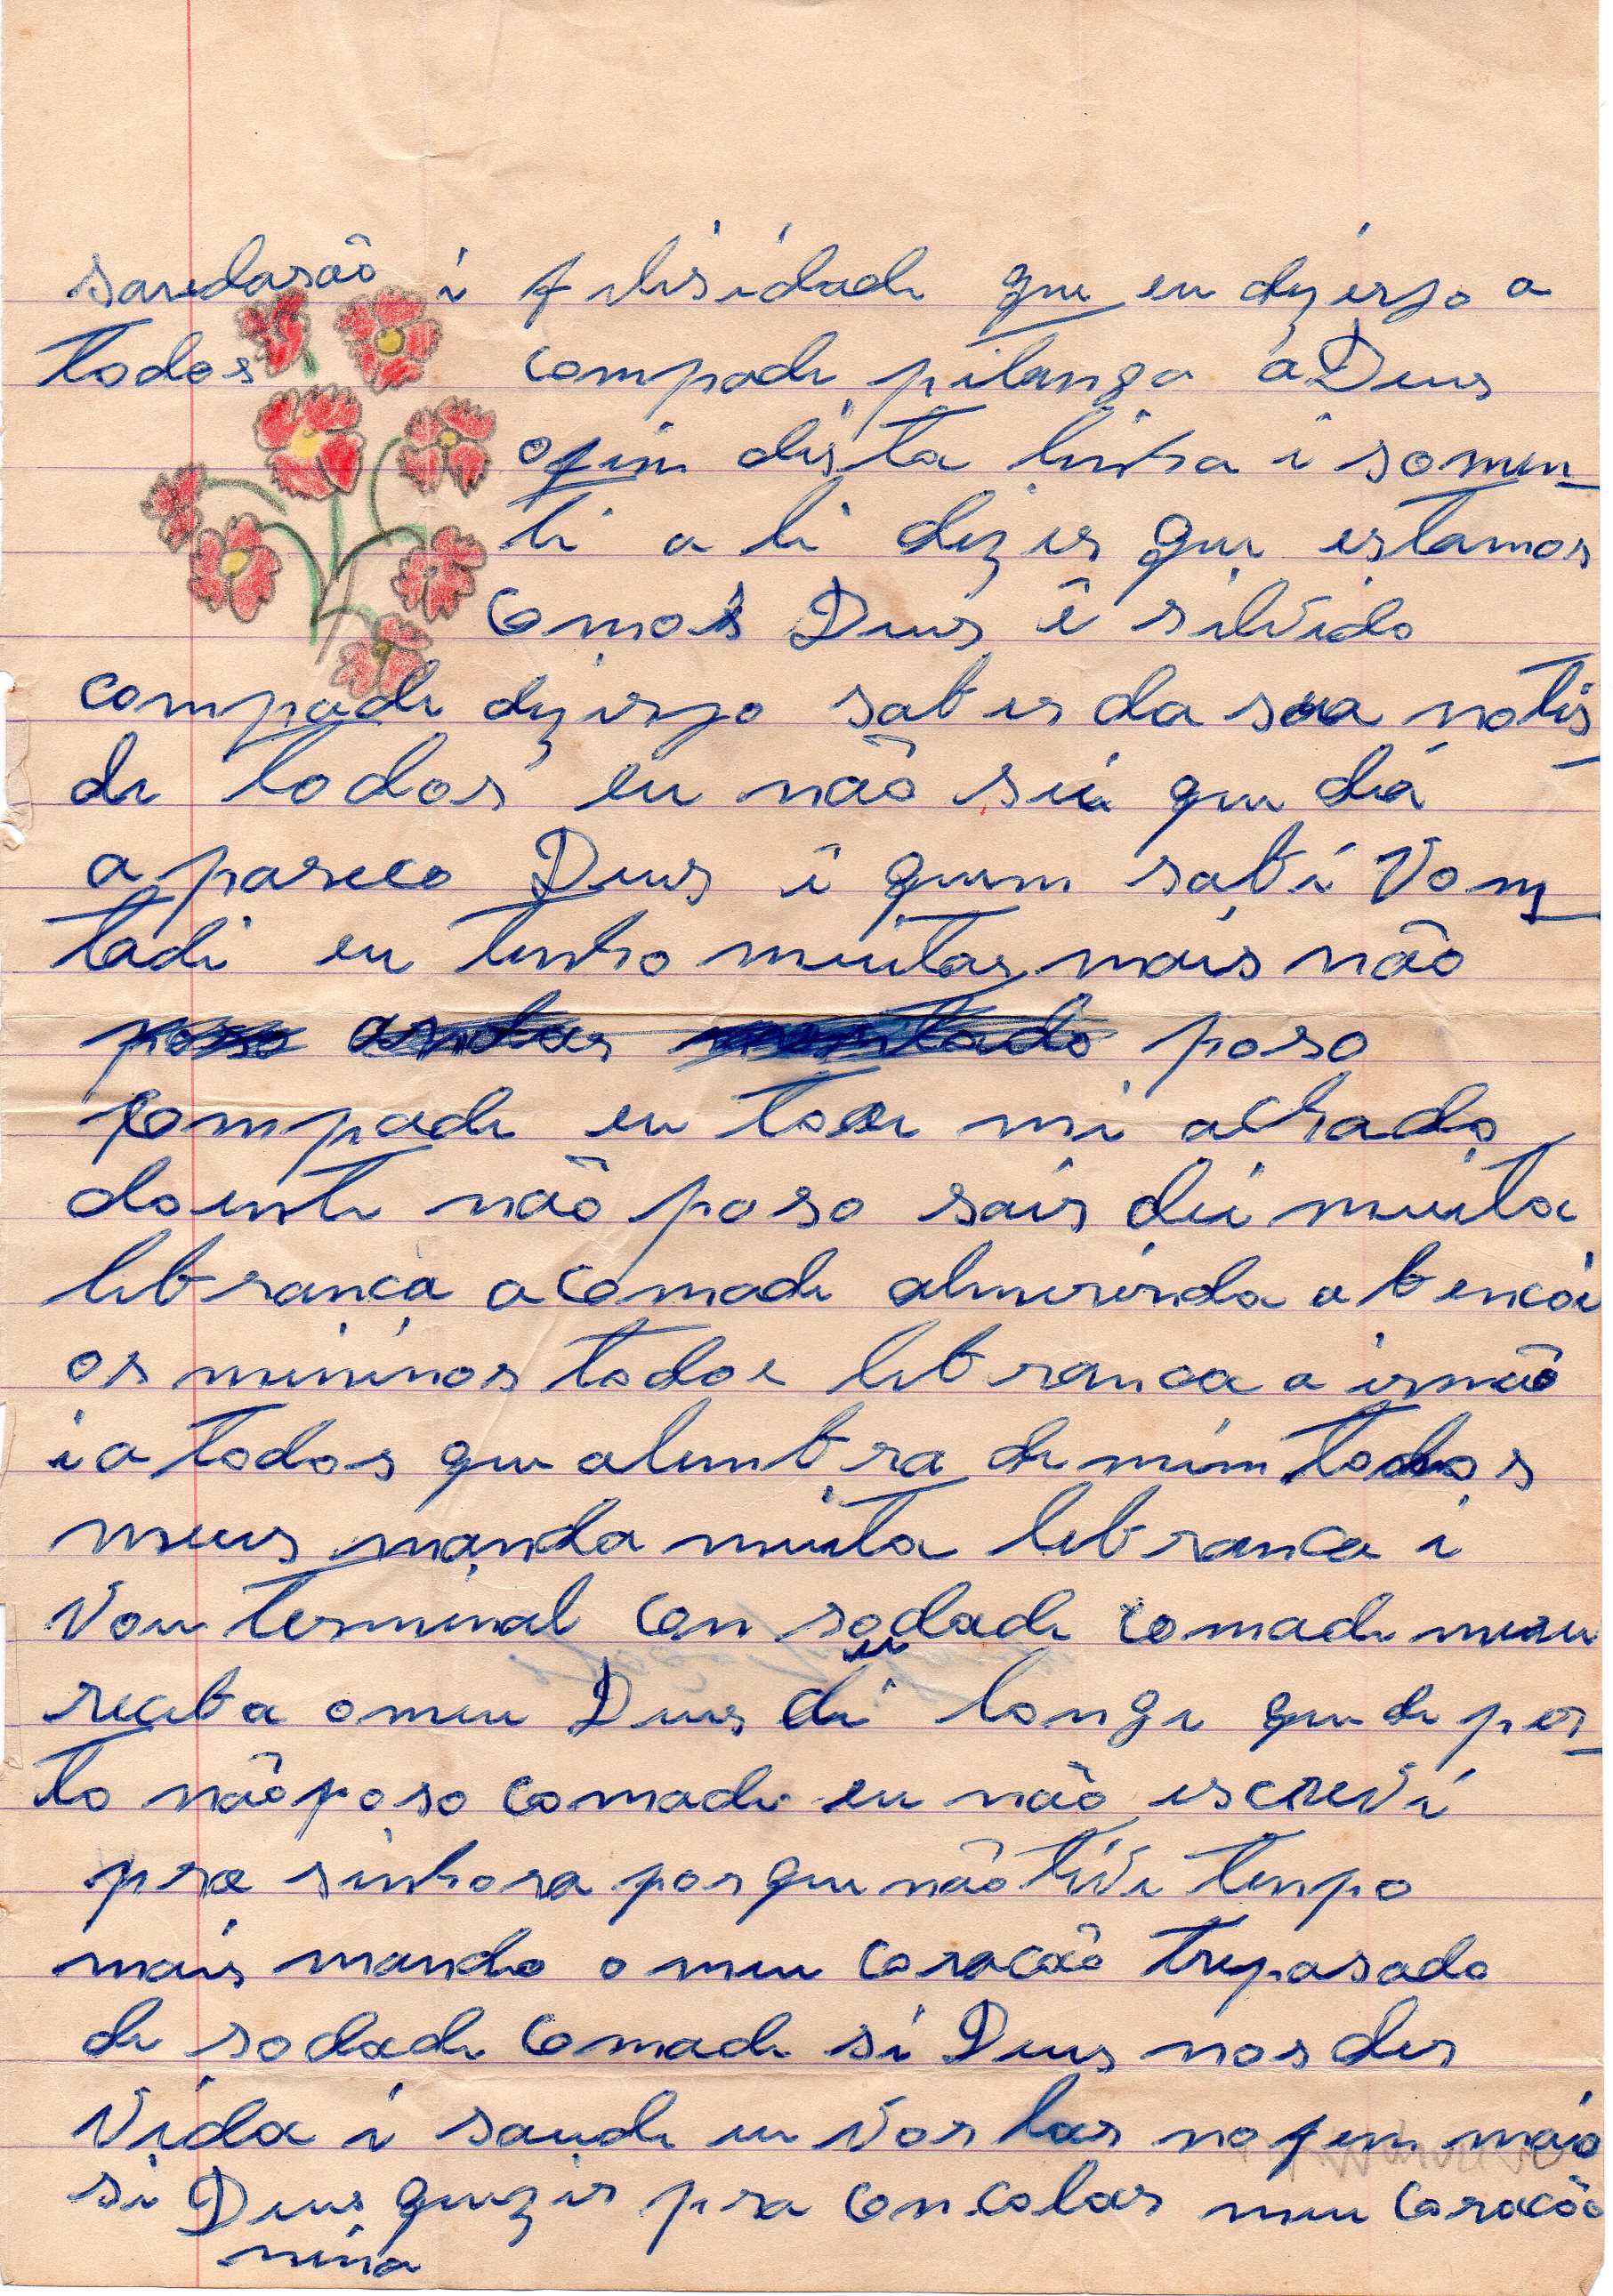 saudasão i filisidadi que eu dizirjo a
todos compadi pitanga a Deus
o fim desta linha i somen-
ti a li dizer que estamos
como Deus é silvido
compadi dizirjo saber da sua notis
di todos eu não sei que dia
apareco Deus é quem sabi Vom-
tadi eu tenho muitas mais não
poso andar montado poso
compadi eu tou mi achado
doenti não poso sair dei muita
lebranca a comadi almerinda a bencoi
os mininos todos lebranca a irmão
i a todos que alembra de mim todos
meus manda muita lebranca i
Vou terminal con sodadi comadi meu
receba o meu a Deus di longi que di per-
to não poso comadi eu não escrevi
pra sinhora porque não tivi tenpo
mais mando o meu coracão trepasado
di sodadi comadi si Deus nos der
Vida i saudi eu Vor lar no fim maio
si Deus quizir pra concolar meu coracão
nina